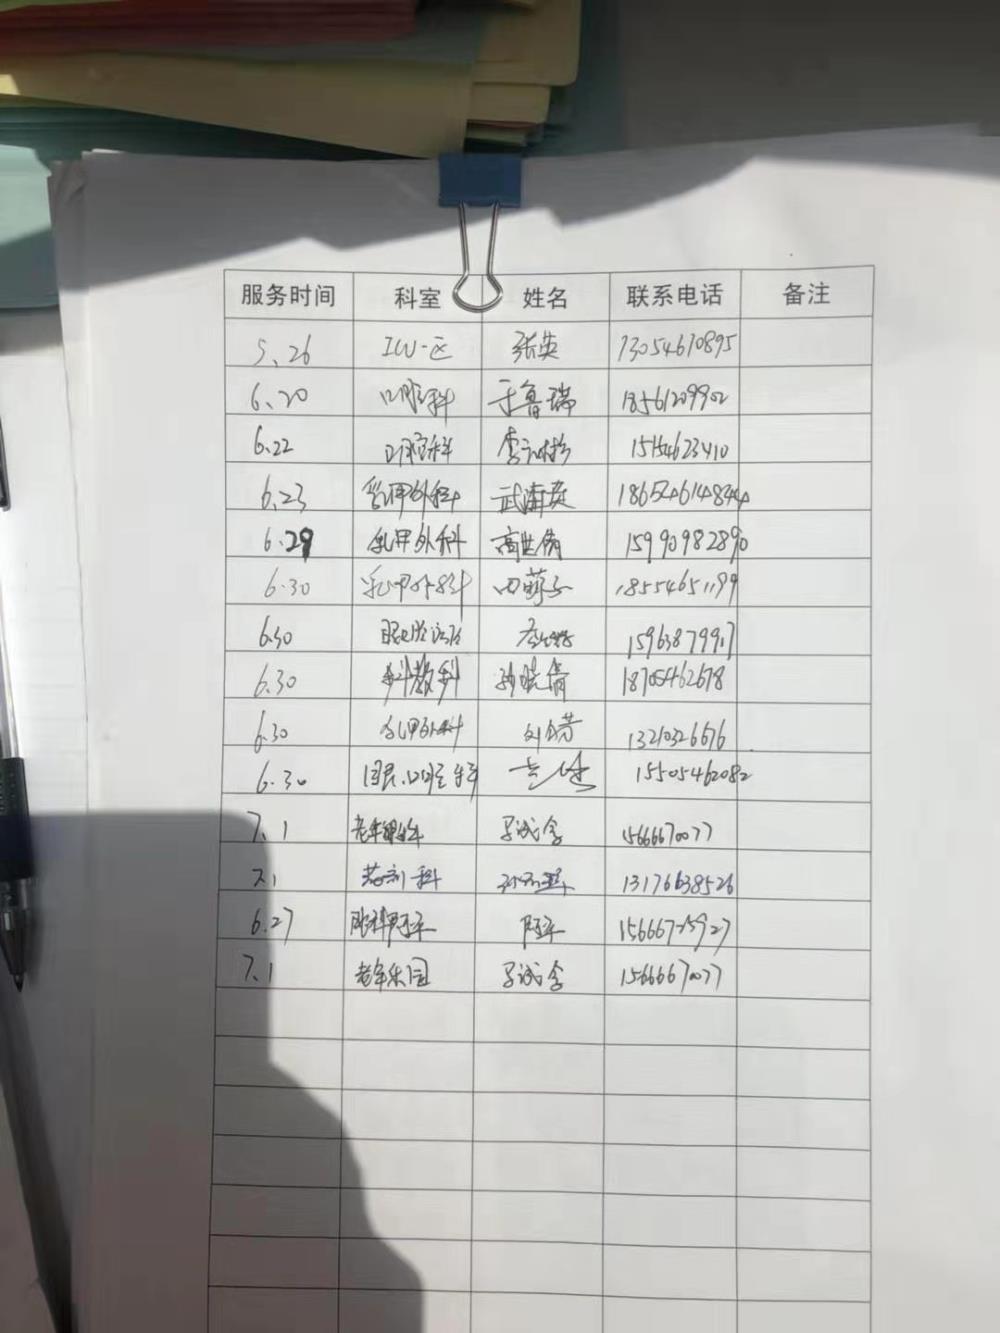 服务时间 科室 姓名 联系电话 备注
5.26 ICU一区 张英 13054670895
6.20 口腔科 于鲁瑞 18561209902
6.22 口腔科 15154623410
6.23 乳甲外科 武海英
6.29 乳甲外科 高世倩 15990982890
6.30 乳甲外科 田萌子 18554651199
6.30 15963879917
6.30 科教科 孙晓倩 18705462678
6.30 乳甲外科 13210326676
6.30 15505462082
7.1 15666670077
7.1 科 13176638526
6.27 眼科 15666725927
7.1 老年乐园 15666670077